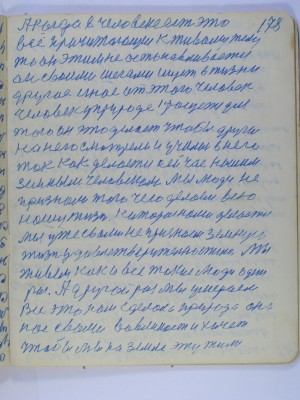 А когда в человеке есть это 178
всё причитающи к живому телу
то он этим не останавливается
он своими шагами ищет в жизни
другое иное от этого человек
человек природе
того он это делает чтобы други
на него смотрели и учили в него
ток как делается сейчас нашим
земным человеком. Мы люди не
признаем того чего делаем всю
нашу жизнь.
мы уже сами не признаем земную
жизнь удовлетворительностию. Мы
живем как и все такие люди один
раз. А другой раз мы умираем
Все это нам сделала природа она
нас своими и хочет
чтобы мы на земле эту